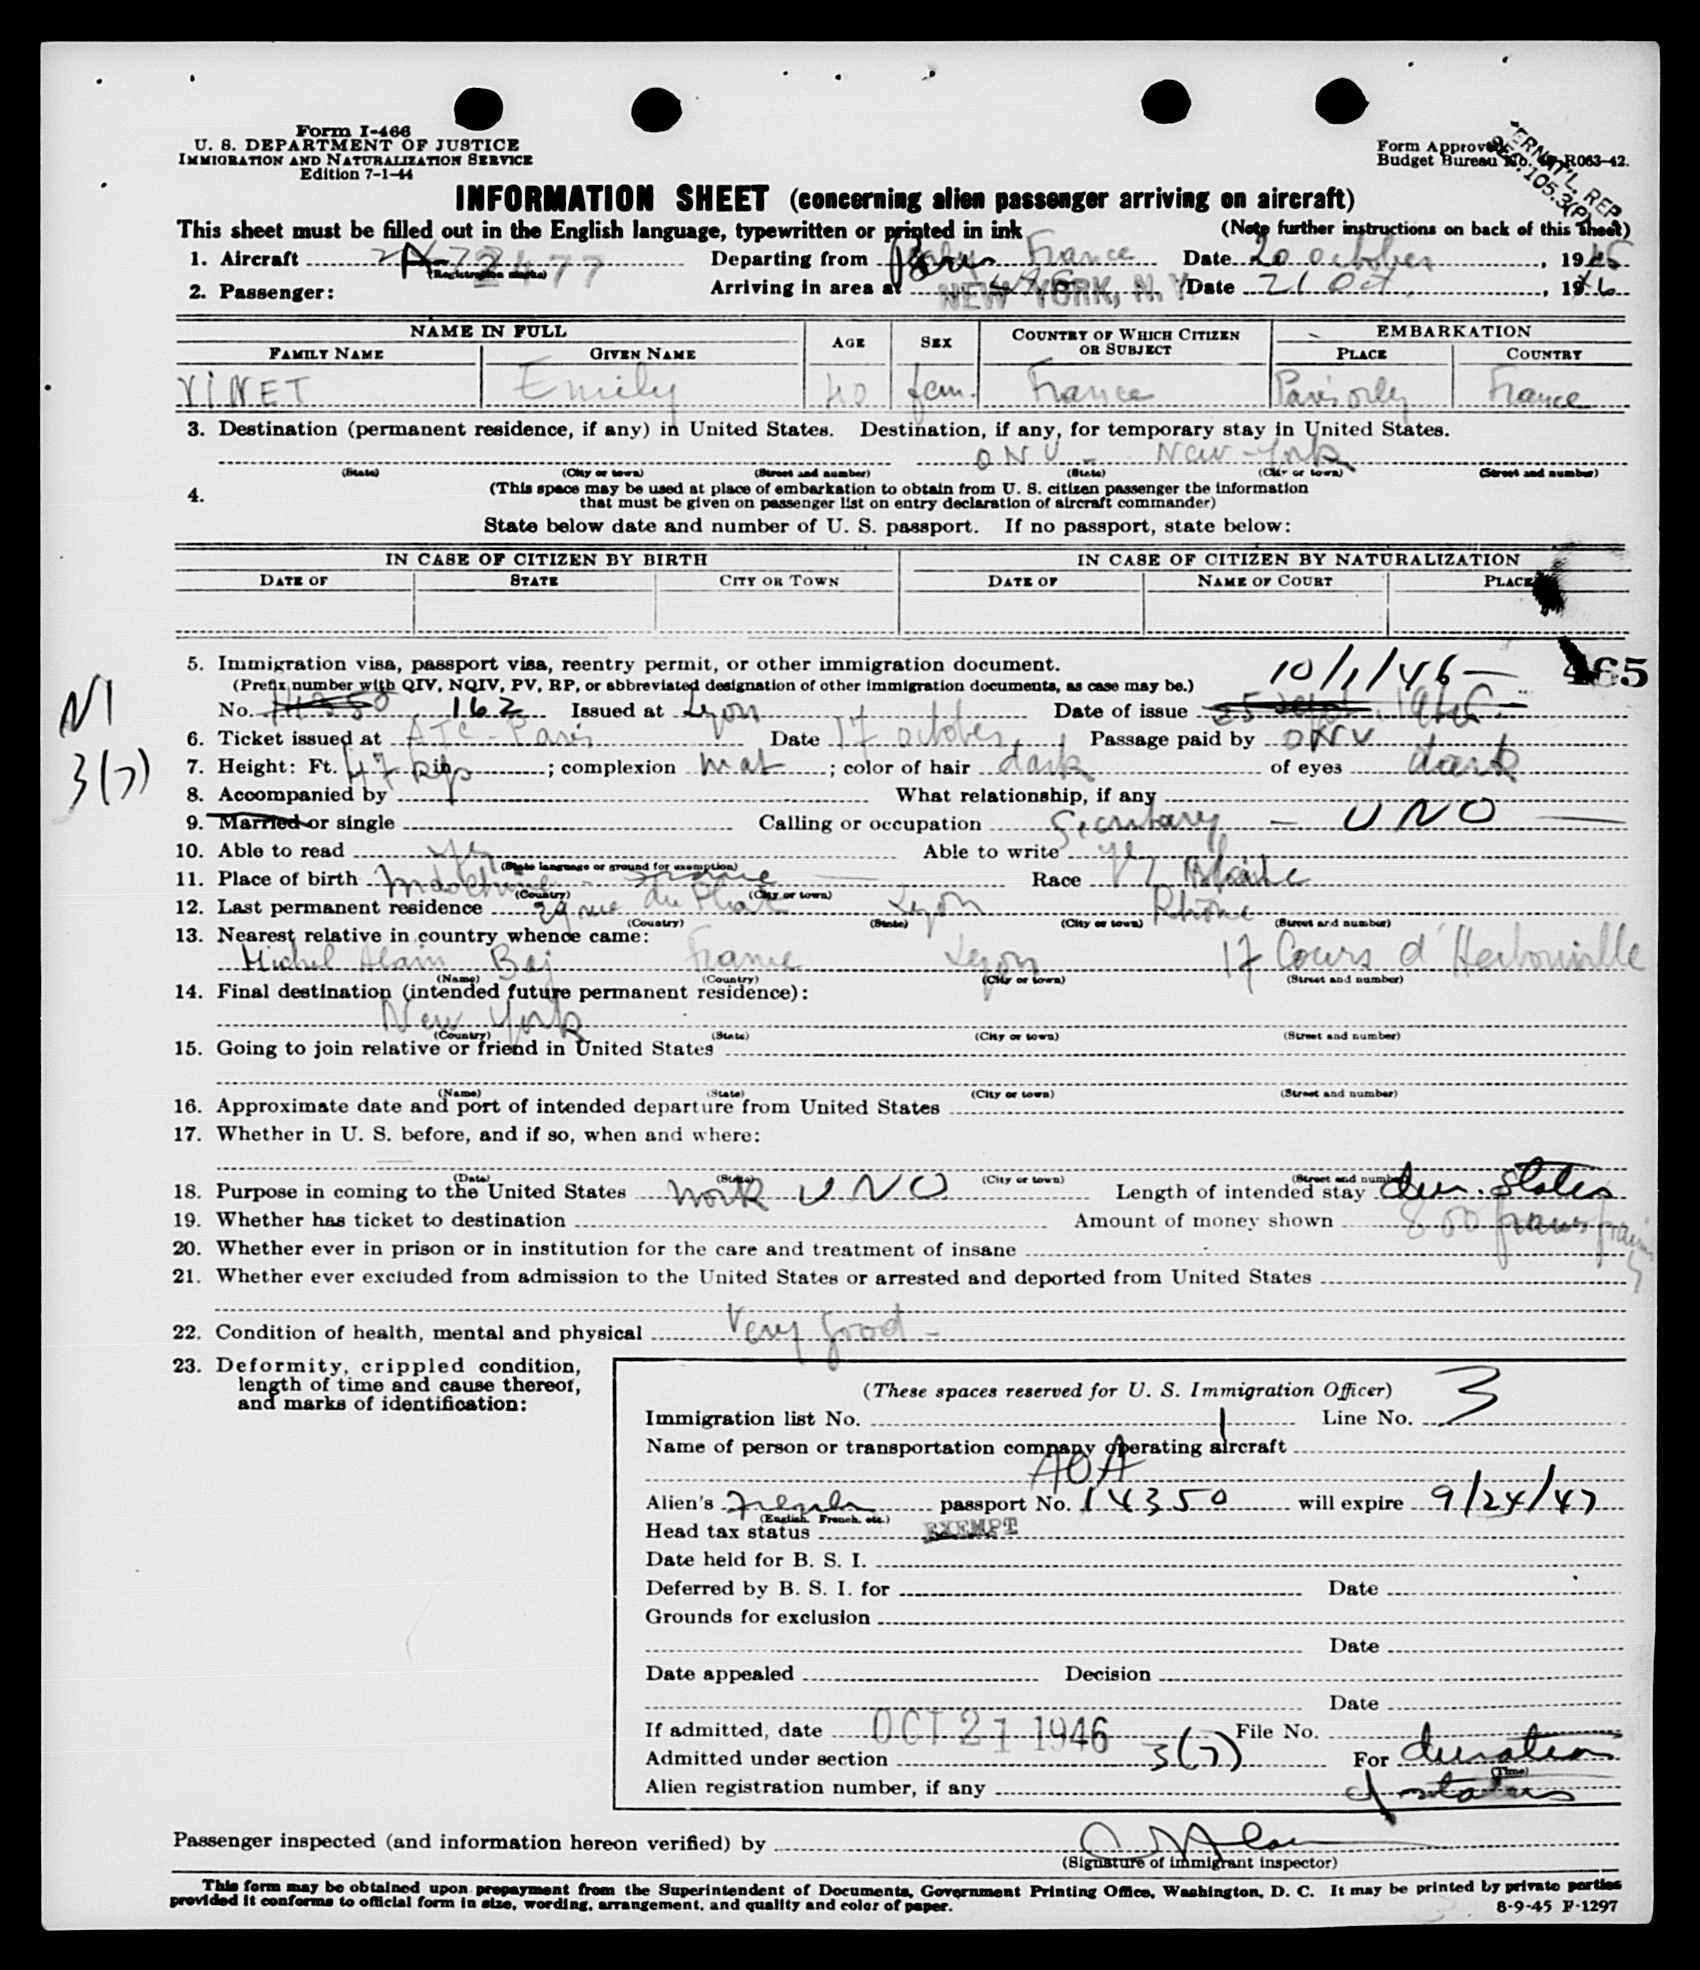 Form I-466
U. S. DEPARTMENT OF JUSTICE
IMMIGRATION AND NATURALIZATION SERVICE
Edition 7-1-44
Form Approved
Budget Bureau No. R063-42.
INFORMATION SHEET (concerning alien passenger arriving on aircraft)
This sheet must be filled out in the English language, typewritten or printed in ink (Note further instructions on back of this sheet)
1. Aircraft (Registration marks) Departing from Paris France Date 20 october, 19
2. Passenger: Arriving in area at NEW YORK, N.Y. Date 21 Oct, 1946
NAME IN FULL AGE SEX COUNTRY OF WHICH CITIZEN OR SUBJECT EMBARKATION
FAMILY NAME GIVEN NAME PLACE COUNTRY
VINET Emily 40 fem. France Paris orly France
3. Destination (permanent residence, if any) in United States. Destination, if any, for temporary stay in United States.
ONU - New-York
(State) (City or town) (Street and number) (State) (City or town) (Street and number)
4. (This space may be used at place of embarkation to obtain from U. S. citizen passenger the information
that must be given on passenger list on entry declaration of aircraft commander)
State below date and number of U. S. passport. If no passport, state below:
IN CASE OF CITIZEN BY BIRTH IN CASE OF CITIZEN BY NATURALIZATION
DATE OF STATE CITY OR TOWN DATE OF NAME OF COURT PLACE
5. Immigration visa, passport visa, reentry permit, or other immigration document. 10/1/46 465
(Prefix number with QIV, NQIV, PV, RP, or abbreviated designation of other immigration documents, as case may be.)
NI
No. 14350 162 Issued at Lyon Date of issue 25 sept. 1946
6. Ticket issued at ATC - Paris Date 17 october Passage paid by ONU
3(7)
7. Height: Ft. 47 kgs in. ; complexion mat ; color of hair dark of eyes dark
8. Accompanied by What relationship, if any
9. Married or single Calling or occupation Secretary - UNO
10. Able to read yes Able to write yes
(State language or ground for exemption)
11. Place of birth Indochine - France Race
(Country) (City or town)
12. Last permanent residence 29 rue du Plat Lyon Rhône
(Country) (State) (City or town) (Street and number)
13. Nearest relative in country whence came:
Michel Alain Bej France Lyon 17 Cours d'Herbouville
(Name) (Country) (City or town) (Street and number)
14. Final destination (intended future permanent residence):
New York
(Country) (State) (City or town) (Street and number)
15. Going to join relative or friend in United States
(Name) (State) (City or town) (Street and number)
16. Approximate date and port of intended departure from United States
17. Whether in U. S. before, and if so, when and where:
(Date) (State) (City or town) (Street and number)
18. Purpose in coming to the United States work UNO Length of intended stay dur. status
19. Whether has ticket to destination Amount of money shown 800 francs français
20. Whether ever in prison or in institution for the care and treatment of insane
21. Whether ever excluded from admission to the United States or arrested and deported from United States
22. Condition of health, mental and physical Very good -
23. Deformity, crippled condition,
length of time and cause thereof,
and marks of identification:
(These spaces reserved for U. S. Immigration Officer)
Immigration list No. 1 Line No. 3
Name of person or transportation company operating aircraft
AOA
Alien's French passport No. 14350 will expire 9/24/47
(English, French, etc.)
Head tax status EXEMPT
Date held for B. S. I.
Deferred by B. S. I. for Date
Grounds for exclusion
Date
Date appealed Decision
Date
If admitted, date OCT 21 1946 File No.
Admitted under section 3(7) For duration
(Time)
Alien registration number, if any of status
Passenger inspected (and information hereon verified) by
(Signature of immigrant inspector)
This form may be obtained upon prepayment from the Superintendent of Documents, Government Printing Office, Washington, D. C. It may be printed by private parties
provided it conforms to official form in size, wording, arrangement, and quality and color of paper.
8-9-45 F-1297